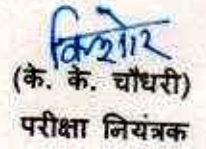 किशोर
(के. के. चौधरी)
परीक्षा नियंत्रक